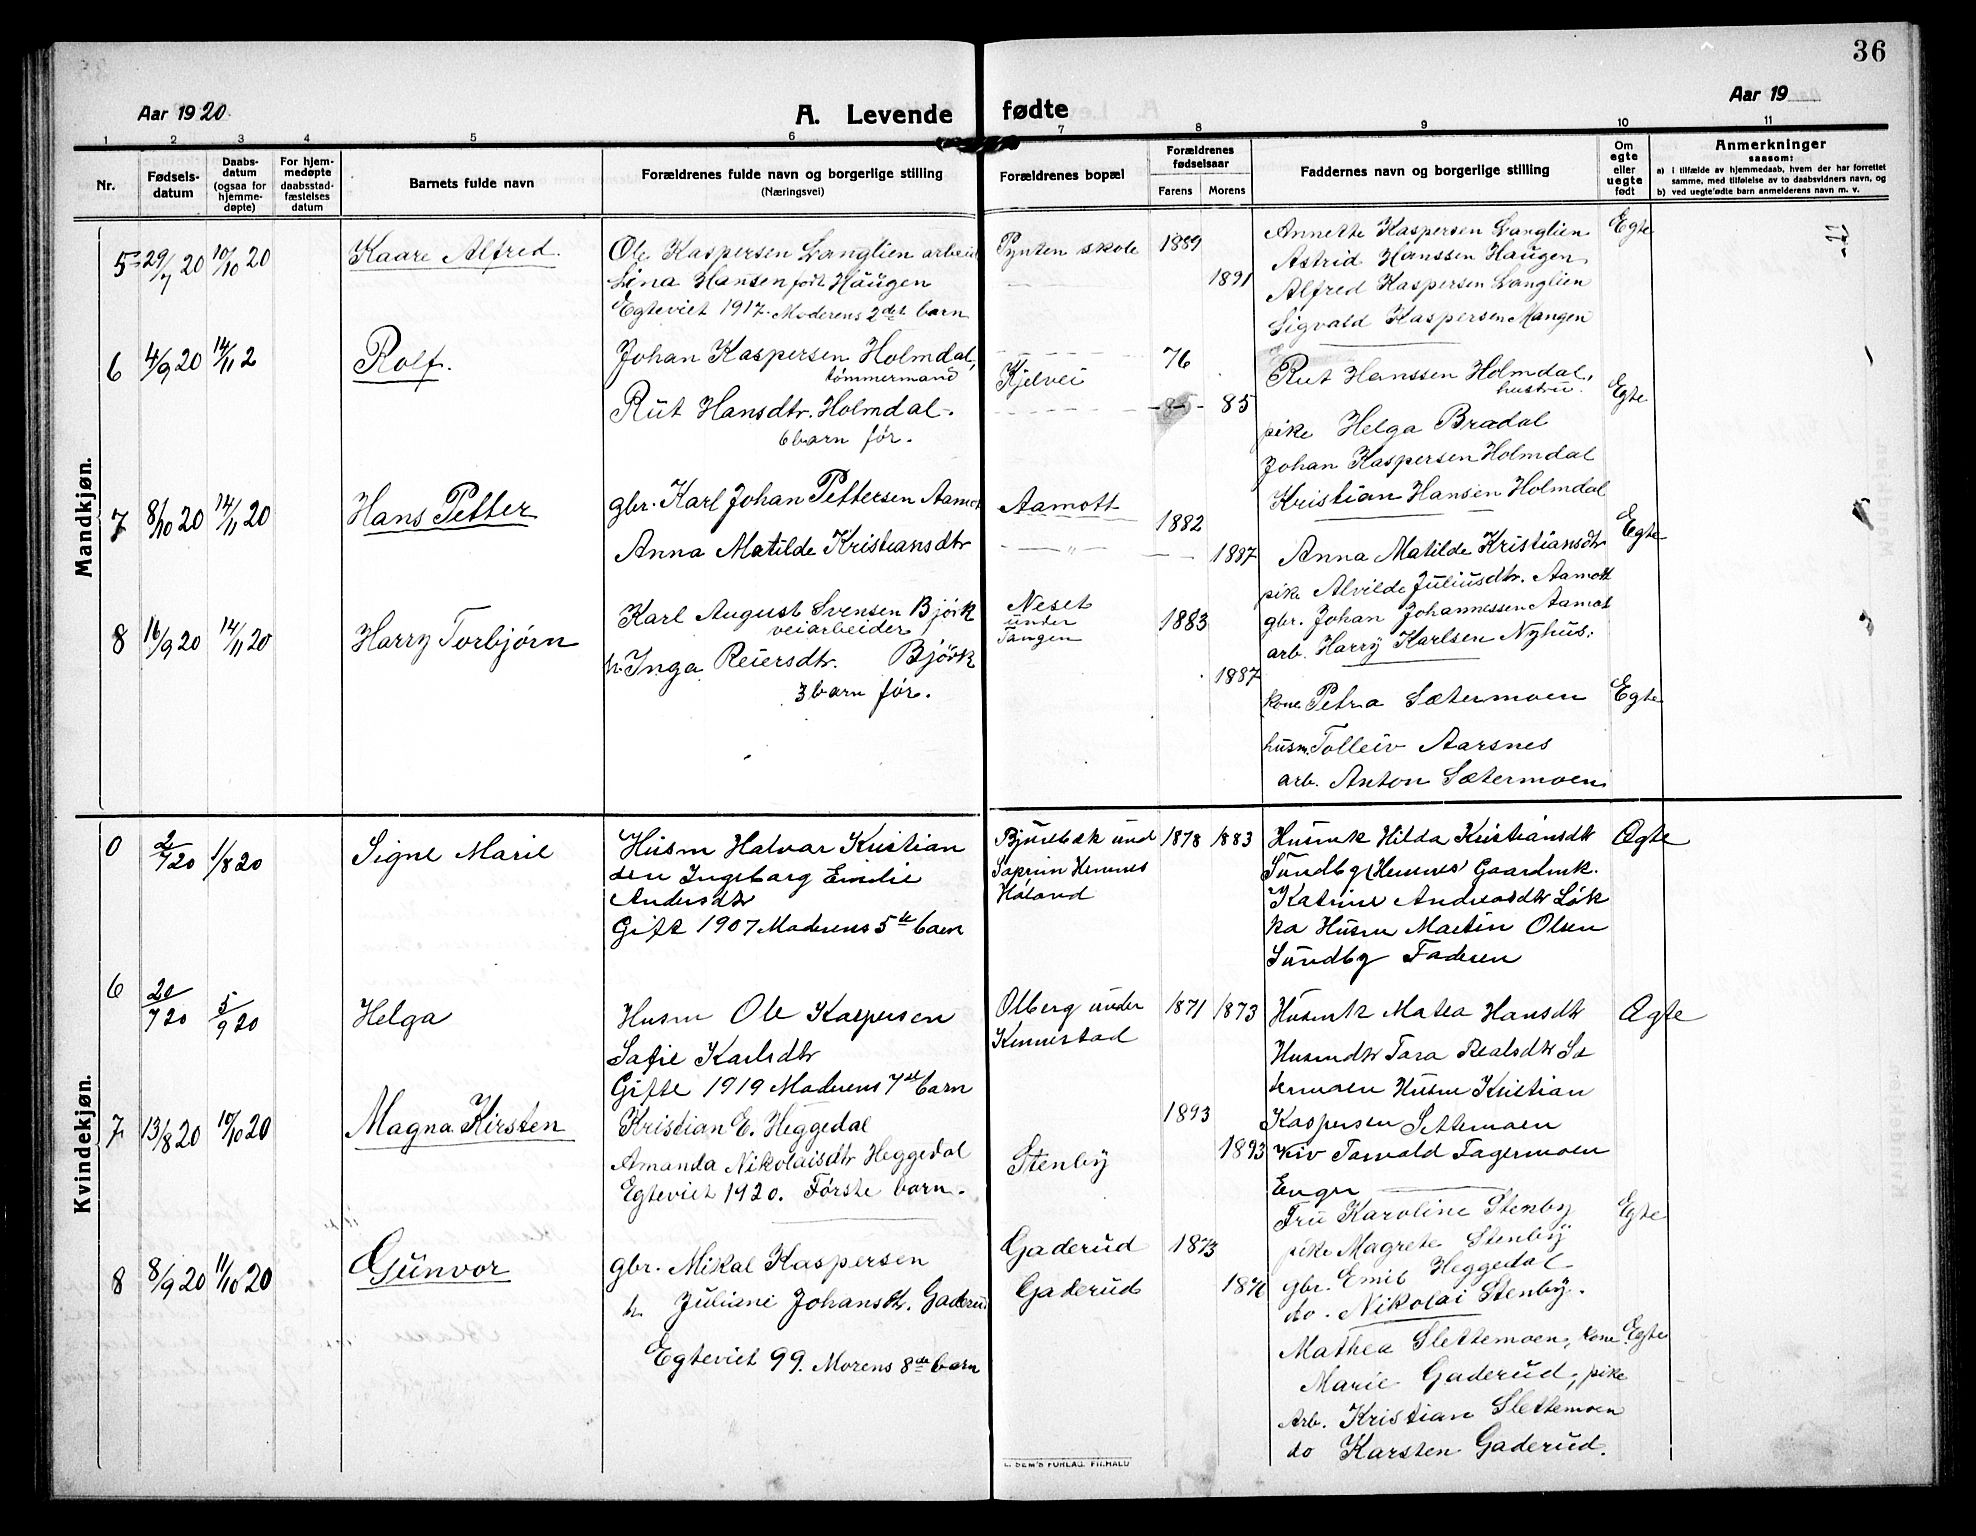 36
Aar 1920
A. Levende fødte
Aar 19
1 2 3 4 5 6 7 8 9 10 11
Nr.
Fødsels-
datum
Daabs-
datum
(ogsaa for
hjemme-
døpte)
For hjem-
medøpte
daabsstad-
fæstelses
datum
Barnets fulde navn
Forældrenes fulde navn og borgerlige stilling
(Næringsvei)
Forældrenes bopæl
Forældrenes
fødselsaar
Farens Morens
Faddernes navn og borgerlige stilling
Om
egte
eller
uegte
født
Anmerkninger
saasom:
a) i tilfælde av hjemmedaab, hvem der har forrettet
samme, med tilføielse av to daabsvidners navn, og
b) ved uegtefødte barn anmelderens navn m. v.
Mandkjøn.
5 29/7 20 10/10 20
Kaare Alfred.
Ole Kaspersen Langlien arbeid
Lina Hansen født Haugen
Egteviet 1917. Moderens 2det barn
Pynten skole 1889
1891
Annette Kaspersen Langlien
Astrid Hanssen Haugen
Alfred Kaspersen Langlien
Sigvald Kaspersen Mangen
Egte
6 4/9 20 14/11 2
Rolf.
Johan Kaspersen Holmdal,
tømmermand
Rut Hansdtr. Holmdal.
6 barn før.
Kjelvei
76
85
Rut Hanssen Holmdal,
hustru.
pike Helga Bradal
Johan Kaspersen Holmdal
Kristian Hansen Holmdal
Egte
7 8/10 20 14/11 20
Hans Petter
gbr. Karl Johan Pettersen Aamot
Anna Matilde Kristiansdtr
Aamott
1882
1887
Anna Matilde Kristiansdtr
pike Alvilde Juliusdtr. Aamott
gbr. Johan Johannessen Aamot
arb. Harry Karlsen Nyhus.
Egte
8 16/9 20 14/11 20
Harry Torbjørn
Karl August Svensen Bjørk
veiarbeider
h. Inga Reiersdtr. Bjørk
3 barn før.
Neset
under
Tangen
1883
1887
kone Petra Sætermoen
husm. Tolleiv Aarsnes
arb. Anton Sætermoen
Egte
Kvindekjøn.
2/7 20 1/8 20
Signe Marie
Husm Halvar Kristian
sen Ingeborg Emilie
Andersdtr
Gift 1907 Moderens 5te barn
Hemnes
Høland
1878 1883
Husmk Hilda Kristiansdtr
Sundby (Hemnes) Gaardmk.
Katrine Andreasdtr Løk
ka Husm Martin Olsen
Sundby Faderen
Ægte
6 20/7 20 5/9 20
Helga
Husm Ole Kaspersen
Sofie Karlsdtr
Gifte 1919 Moderens 7de barn
Olberg under
Kinnestad
1871 1873
Husmk Matea Hansdtr
Husmdtr Tara Realsdtr Se
termoen Husm Kristian
Kaspersen Settemoen
Torvald Fagermoen
Enger
Ægte
7 13/8 20 10/10 20
Magna Kirsten
Kristian E. Heggedal
Amanda Nikolaisdtr Heggedal
Egteviet 1920. Første barn.
Stenby
1893
1893
Fru Karoline Stenby
pike Magrete Stenby
gbr. Emil Heggedal
do. Nikolai Stenby.
Egte
8 8/9 20 11/10 20
Gunvor
gbr. Mikal Kaspersen
h. Juliane Johansdtr. Gaderud
Egteviet 99. Morens 8de barn
Gaderud
Gaderud
1873
1876
Mathea Slettemoen, kone
Marie Gaderud, pike
Arb. Kristian Slettemoen
do Karsten Gaderud.
Egte
SEM'S FORLAG. FR.HALD